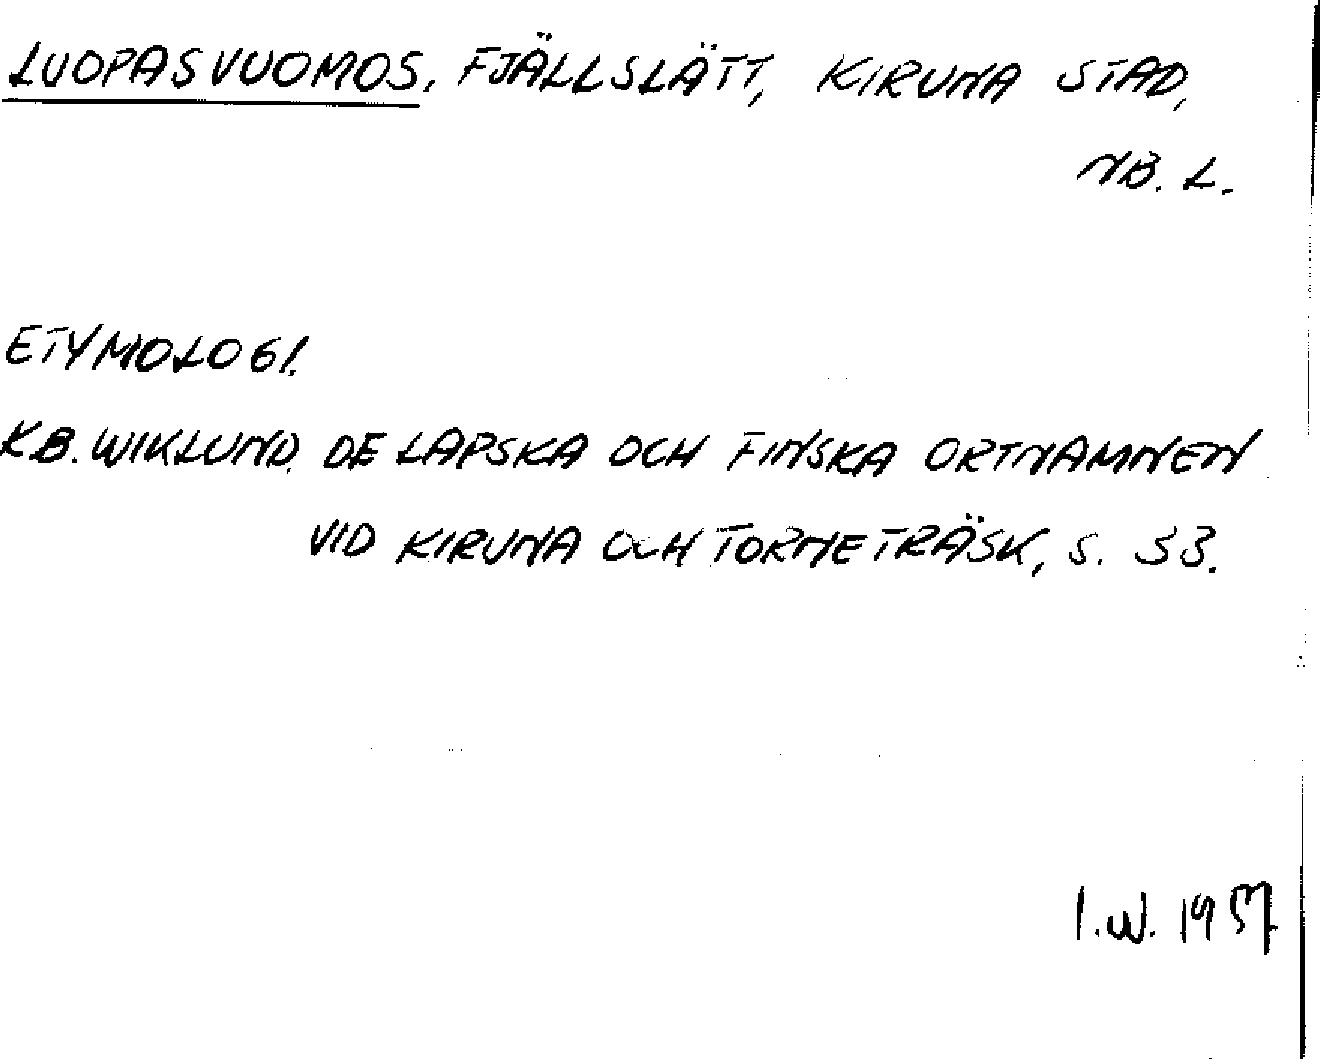 LUOPASVUOMOS, FJÄLLSLÄTT, KIRUNA STAD,
NB. L.
ETYMOLOGI.
K.B. WIKLUND. DE LAPSKA OCH FINSKA ORTNAMNEN
VID KIRUNA OCH TORNETRÄSK, S. 33.
I.W. 1957